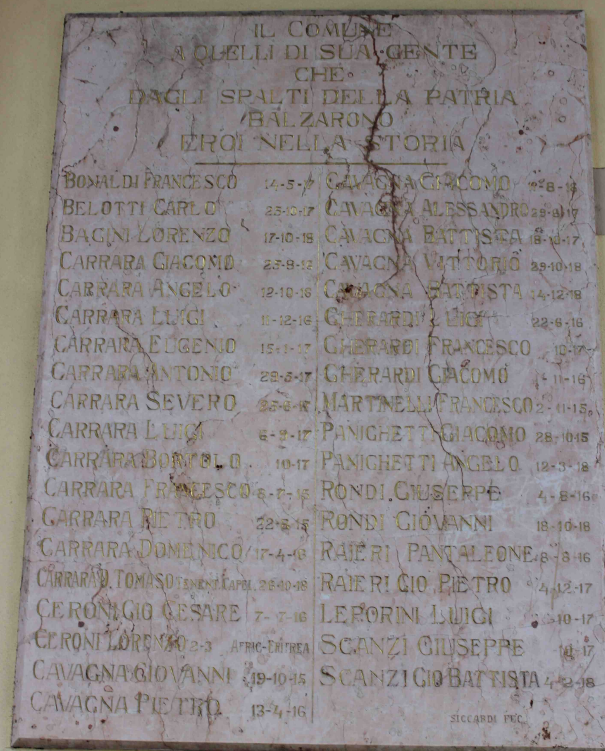 IL COMUNE
A QUELLI DI SUA GENTE
CHE
DAGLI SPALTI DELLA PATRIA
BALZARONO
EROI NELLA STORIA
BONALDI FRANCESCO 14-5-17
BELOTTI CARLO 23-10-17
BAGINI LORENZO 17-10-18
CARRARA GIACOMO
CARRARA ANGELO 12-10-16
CARRARA LUIGI 11-12-16
CARRARA EUGENIO
CARRARA ANTONIO 28-5-17
CARRARA SEVERO
CARRARA LUIGI
CARRARA BORTOLO 10-17
CARRARA FRANCESCO
CARRARA PIETRO
CARRARA DOMENICO 17-4-16
CARRARA D. TOMASO TENENT. CAPPL. 26-10-18
CERONI GIO CESARE 7-7-16
CERONI LORENZO 2-3 AFRIC-ERITREA
CAVAGNA GIOVANNI 19-10-15
CAVAGNA PIETRO 13-4-16
CAVAGNA GIACOMO
CAVAGNA ALESSANDRO
CAVAGNA BATTISTA 18-10-17
CAVAGNA VITTORIO 29-10-18
CAVAGNA BATTISTA 14-12-18
GHERARDI LUIGI 22-6-16
GHERARDI FRANCESCO
GHERARDI GIACOMO
MARTINELLI FRANCESCO 2-11-15
PANIGHETTI GIACOMO 28-10-15
PANIGHETTI ANGELO 12-3-18
RONDI GIUSEPPE 4-8-16
RONDI GIOVANNI 18-10-18
RAIERI PANTALEONE
RAIERI GIO PIETRO 4-12-17
LEPORINI LUIGI
SCANZI GIUSEPPE
SCANZI GIO BATTISTA 4-2-18
SICCARDI FEC.